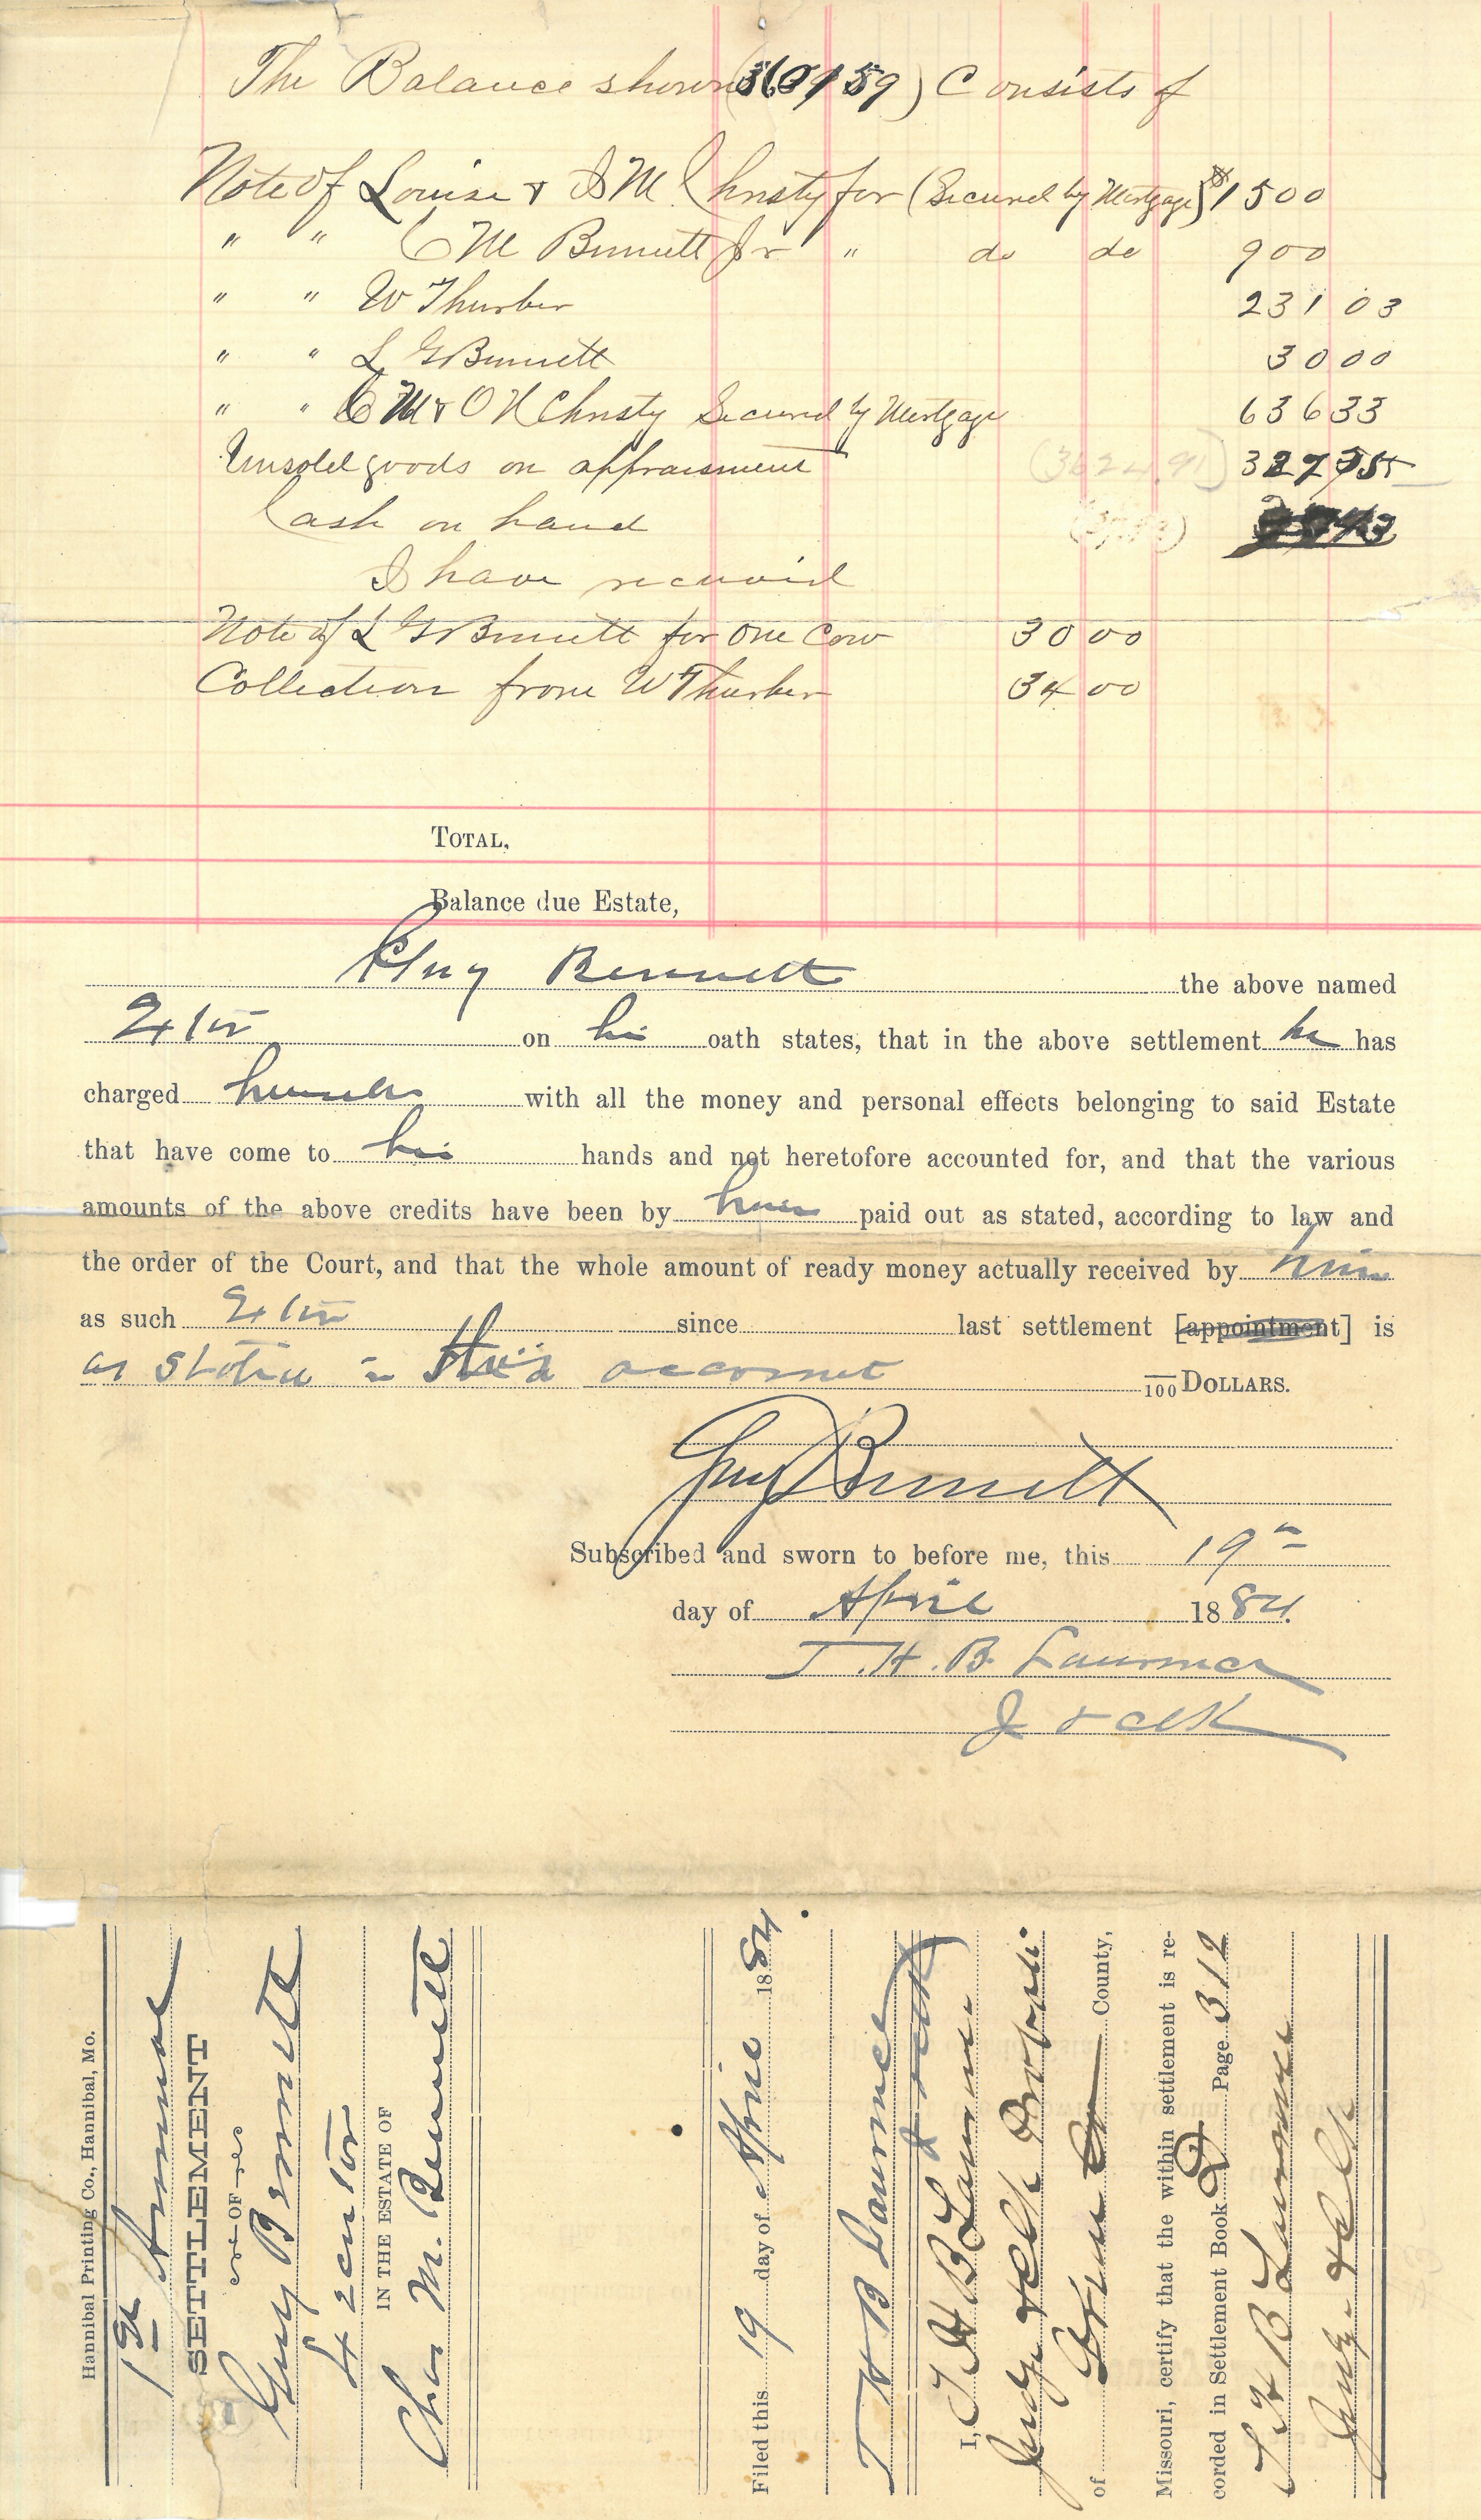 The Balance shown ( ) Consists of
Note of Louise & I M Christy for (Secured by Mortgage) $1500
" " C M Bennett Jr " do do 900
" " W Thurber 231 03
" " L G Bennett 30 00
" " C M & O N Christy Secured by Mortgage 636 33
Unsold goods on appraisment (3624.91) 327 55
Cash on hand
I have recuvid
Note of L G Bennett for One Cow 30 00
Collection from W Thurber 34 00
TOTAL,
Balance due Estate,
Guy Bennett the above named
Exr on his oath states, that in the above settlement he has
charged himself with all the money and personal effects belonging to said Estate
that have come to his hands and not heretofore accounted for, and that the various
amounts of the above credits have been by him paid out as stated, according to law and
the order of the Court, and that the whole amount of ready money actually received by him
as such Exr since last settlement [appointment] is
as stated in this account /100 DOLLARS.
Guy Bennett
Subscribed and sworn to before me, this 19th
day of April 1884.
T. H. B. Lawrence
J & Clk
Hannibal Printing Co., Hannibal, Mo.
1st Annual
SETTLEMENT
OF
Guy Bennett
Executor
IN THE ESTATE OF
Chas M. Bennett
Filed this 19 day of April 1884
T H B Lawrence
J & Clk
I, T H B Lawrence
Judge & Clk Probate
of County,
Missouri, certify that the within settlement is re-
corded in Settlement Book D Page 312
T H B Lawrence
Judge & Clk